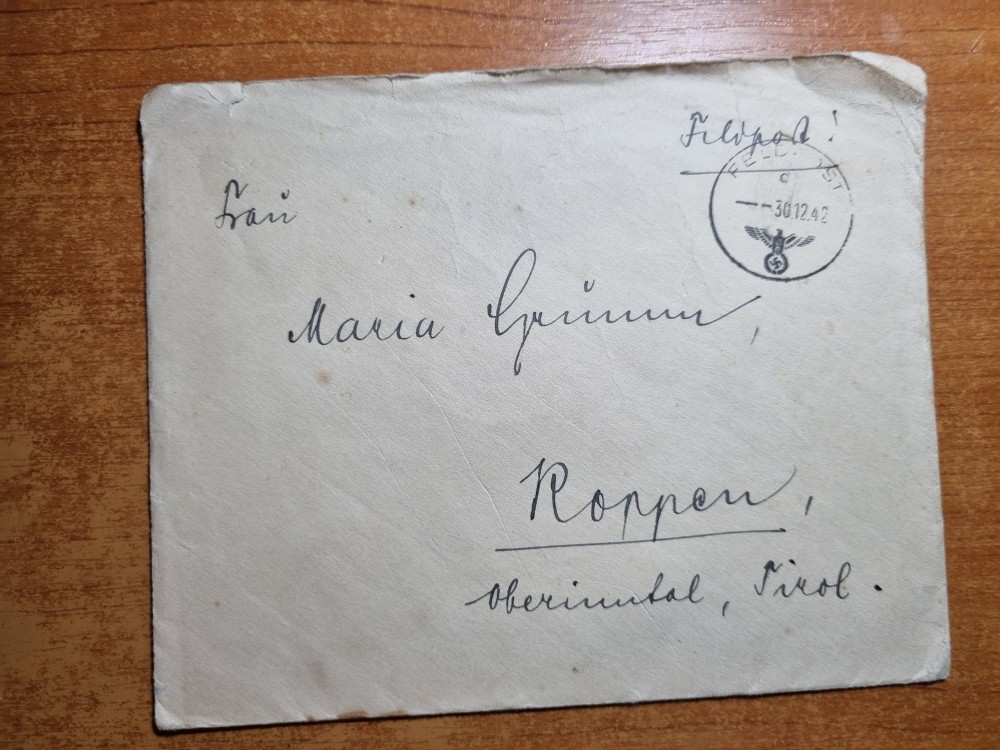 Feldpost!
FELDPOST
c
--30.12.42
Frau
Maria
Roppen,
Oberinntal, Tirol.